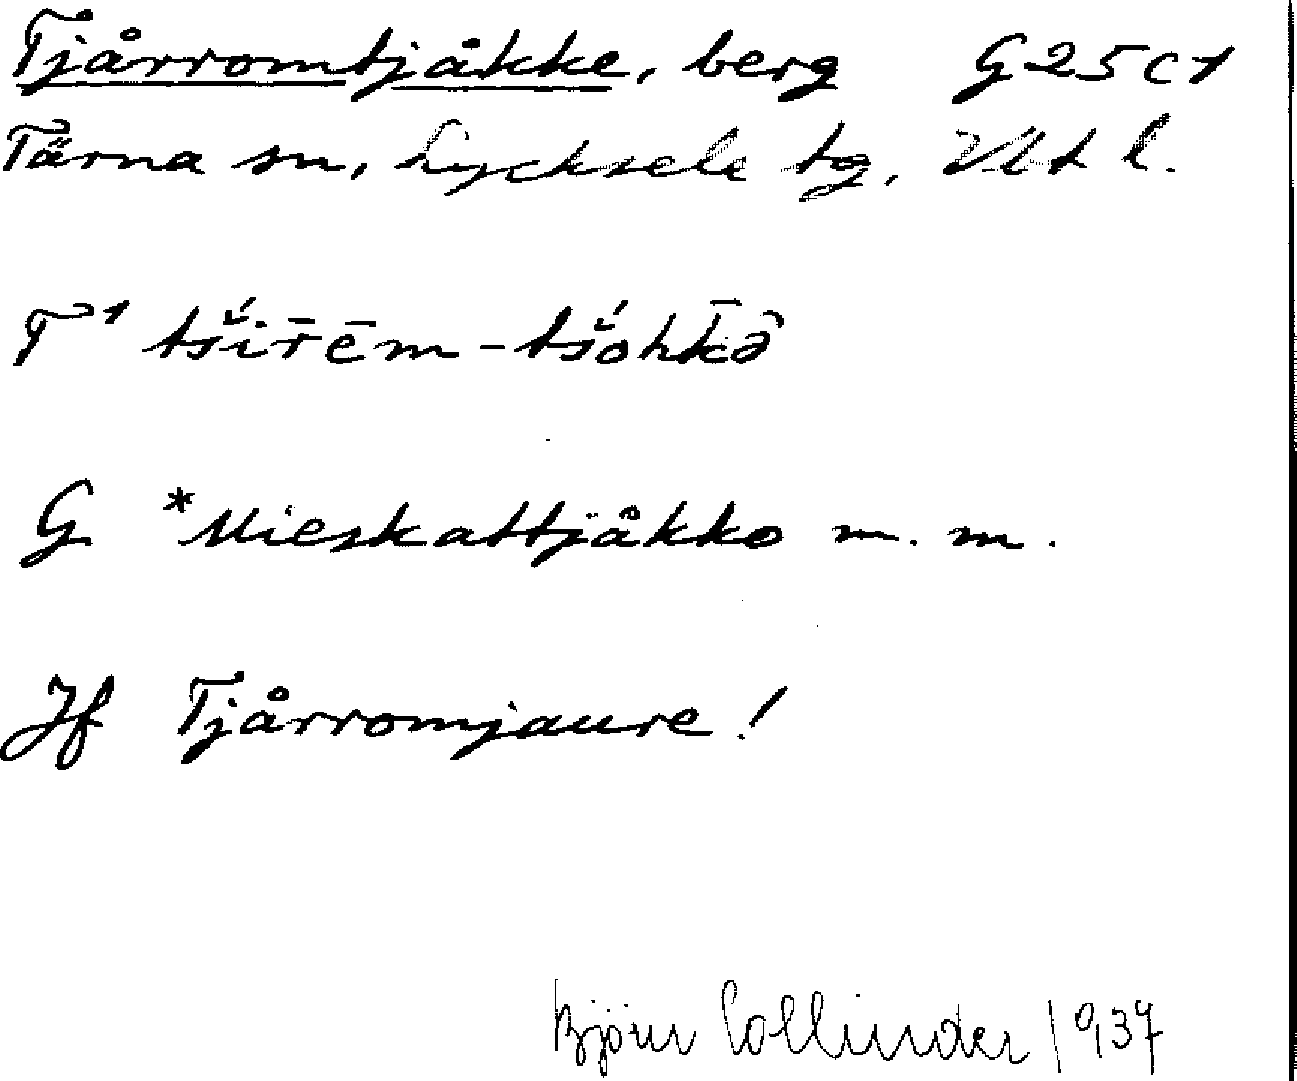 Tjårromtjåkke, berg G25c1
Tärna sn, Lycksele tg, Vlt l.
T¹ tš́ir̄ēm-tš́ohk̄ə̑
G *Mieskattjåkko m.m.
Jf Tjårromjaure!
Björn Collinder 1937